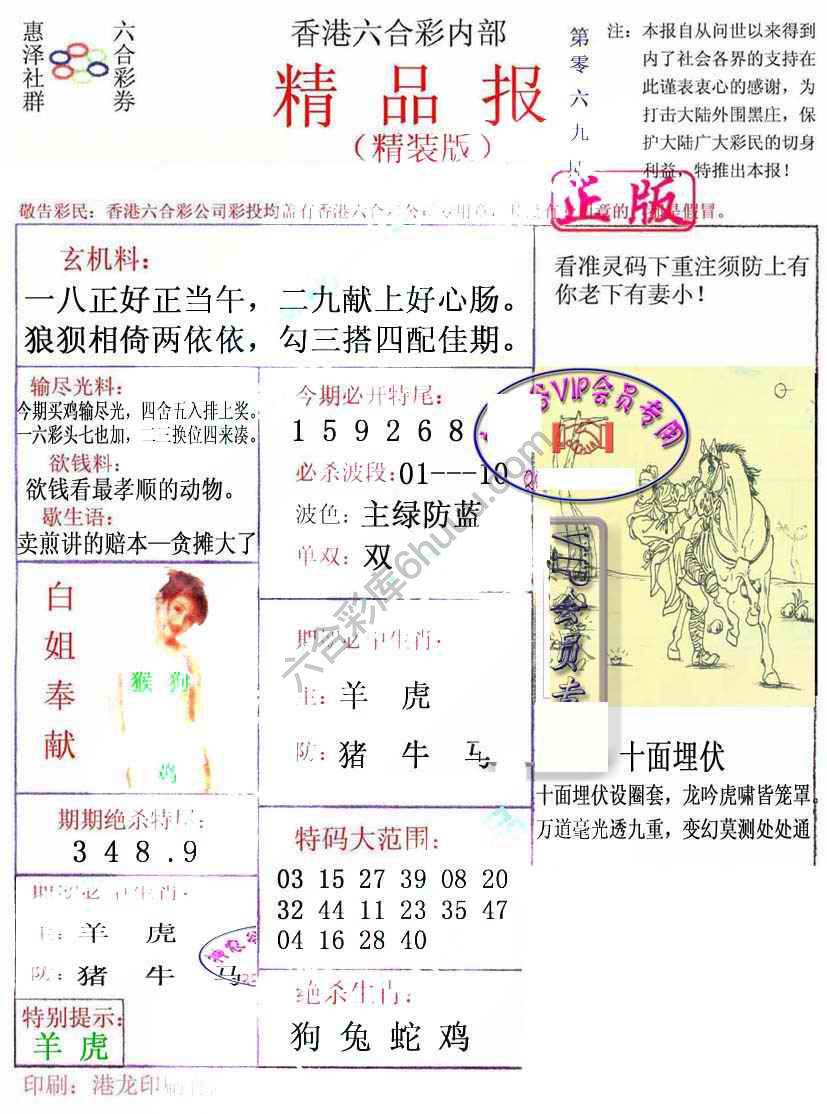 惠泽社群
六合彩券
香港六合彩内部
精品报
(精装版)
第零六九
注：本报自从问世以来得到
内了社会各界的支持在
此谨表衷心的感谢，为
打击大陆外围黑庄，保
护大陆广大彩民的切身
利益，特推出本报！
正版
敬告彩民：香港六合彩公司彩投均盖有香港六合
假冒。
玄机料：
一八正好正当午，二九献上好心肠。
狼狈相倚两依依，勾三搭四配佳期。
看准灵码下重注须防上有
你老下有妻小！
输尽光料：
今期买鸡输尽光，四舍五入排上奖。
一六彩头七也加，二三换位四来凑。
欲钱料：
欲钱看最孝顺的动物。
歇生语：
卖煎讲的赔本—贪摊大了
今期必开特尾：
1 5 9 2 6 8
必杀波段：01---10
波色：主绿防蓝
单双：双
VIP会员专用
VIP会员专
白姐奉献
猴 狗
鸡
期期必中生肖：
主：羊 虎
防：猪 牛 马
十面埋伏
十面埋伏设圈套，龙吟虎啸皆笼罩。
万道毫光透九重，变幻莫测处处通
期期绝杀特尾：
3 4 8 .9
特码大范围：
03 15 27 39 08 20
32 44 11 23 35 47
04 16 28 40
期期必中生肖：
主：羊 虎
防：猪 牛 马
绝杀生肖：
狗 兔 蛇 鸡
特别提示：
羊 虎
印刷：港龙印刷
六合彩库6huu.com